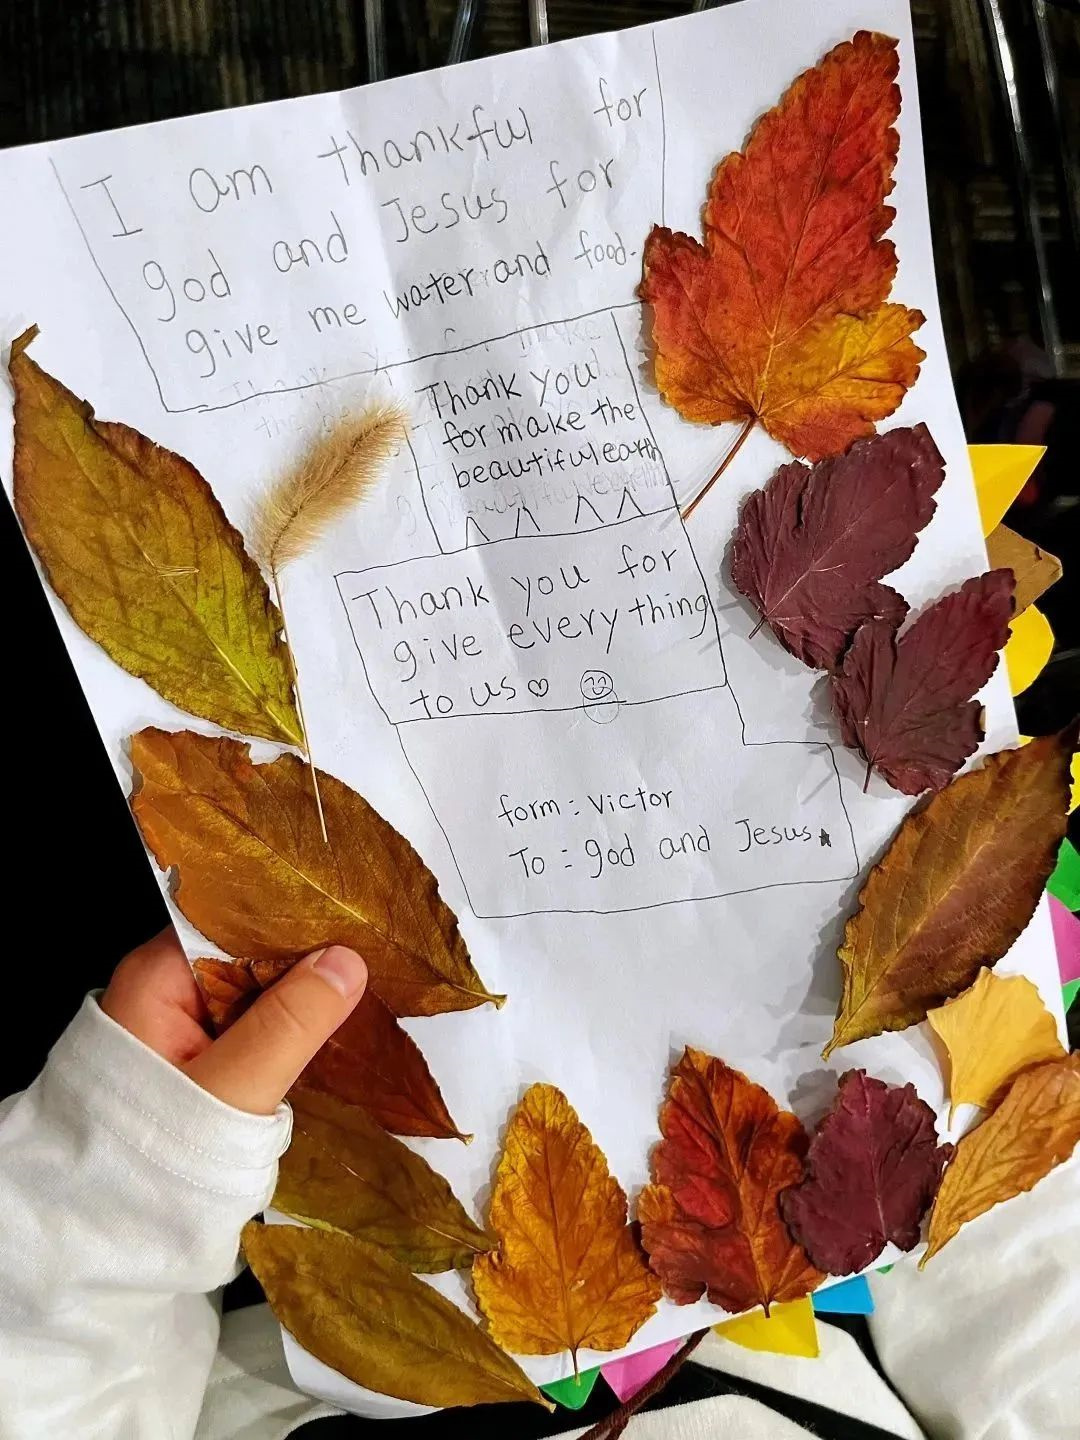 I am thankful for
god and Jesus for
give me water and food.
Thank you
for make the
beautiful earth
Thank you for
give everything
to us ♡
form : Victor
To : god and Jesus ★